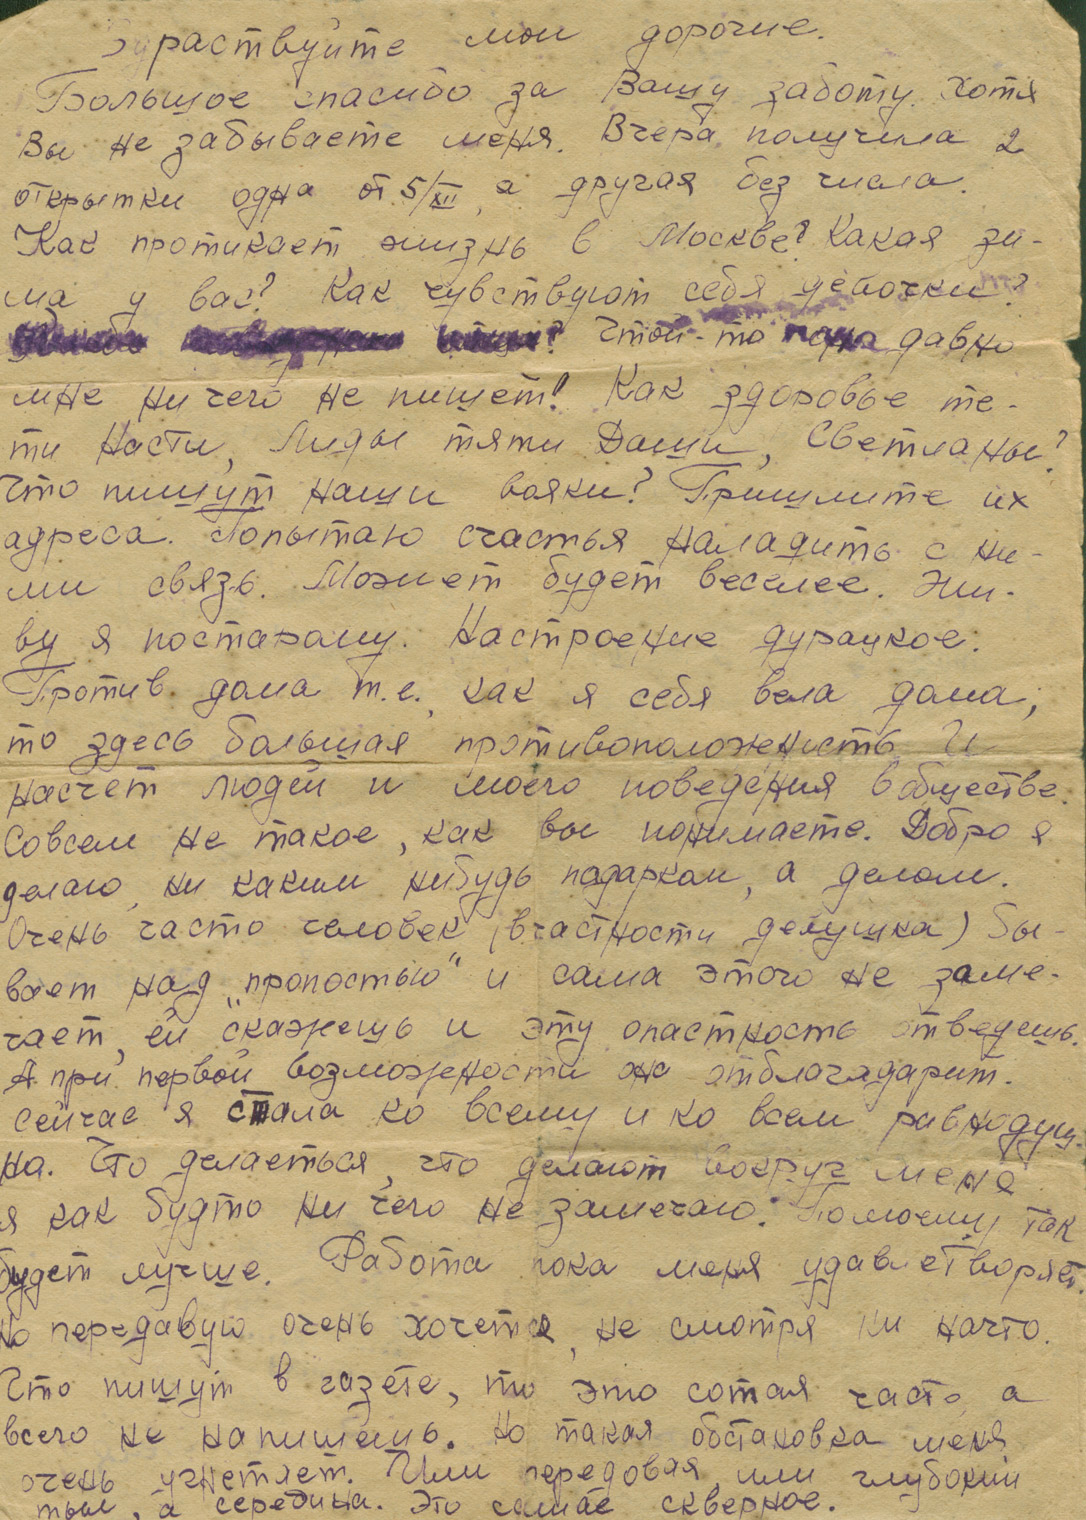 Здраствуйте мои дорогие.
Большое спасибо за Вашу заботу. Хотя
Вы не забываете меня. Вчера получила 2
открытки одна от 5/XII, а другая без числа.
Как протикает жизнь в Москве? Какая зи-
ма у вас? Как чувствуют себя девочки?
? Чтой-то давно
мне ни чего не пишет! Как здоровье те-
ти Насти, Лиды тяти Даши, Светланы?
Что пишут наши вояки? Пришлите их
адреса. Попытаю счастья наладить с ни-
ми связь. Может будет веселее. Жи-
ву я постарому. Настроение дурацкое.
Против дома т.е. как я себя вела дома,
то здесь большая противоположность. И
насчет людей и моего поведения в обществе.
Совсем не такое, как вы понимаете. Добро я
делаю, ни каким нибудь подарком, а делом.
Очень часто человек (вчастности девушка) бы-
вает над "пропостью" и сама этого не заме-
чает, ей скажешь и эту опастность отведешь.
А при первой возможности она отблагадарит.
Сейчас я стала ко всему и ко всем равнодуш-
на. Что делаеться, что делают вокруг меня
я как будто ни чего не замечаю. Помоему так
будет лучше. Работа пока меня удавлетворяет.
Но передавую очень хочется, не смотря ни начто.
Что пишут в газете, то это сотая часть, а
всего не напишешь. Но такая обстановка меня
очень угнетяет. Или передовая или глубокий
тыл, а середина. Это самае скверное.